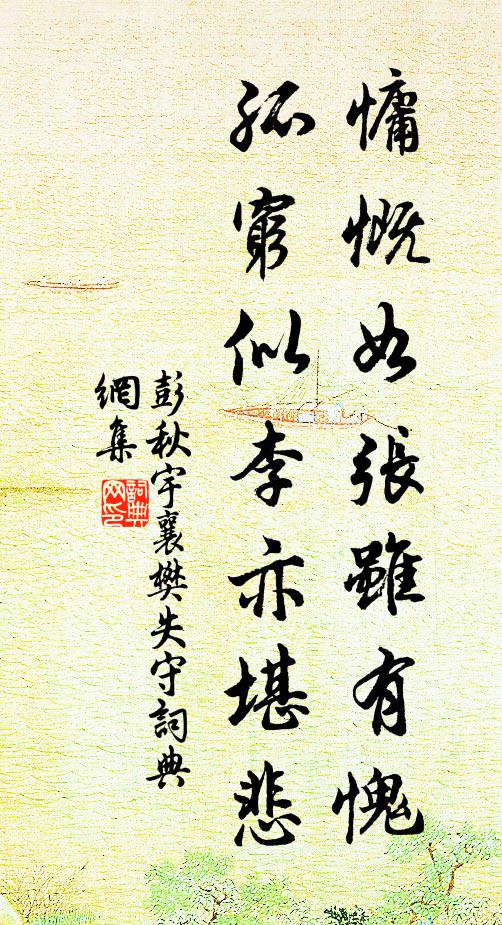 慵慨如張雖有愧
孤窮似李亦堪悲
彭秋宇襄樊失守詞典
網集
詞典
网印